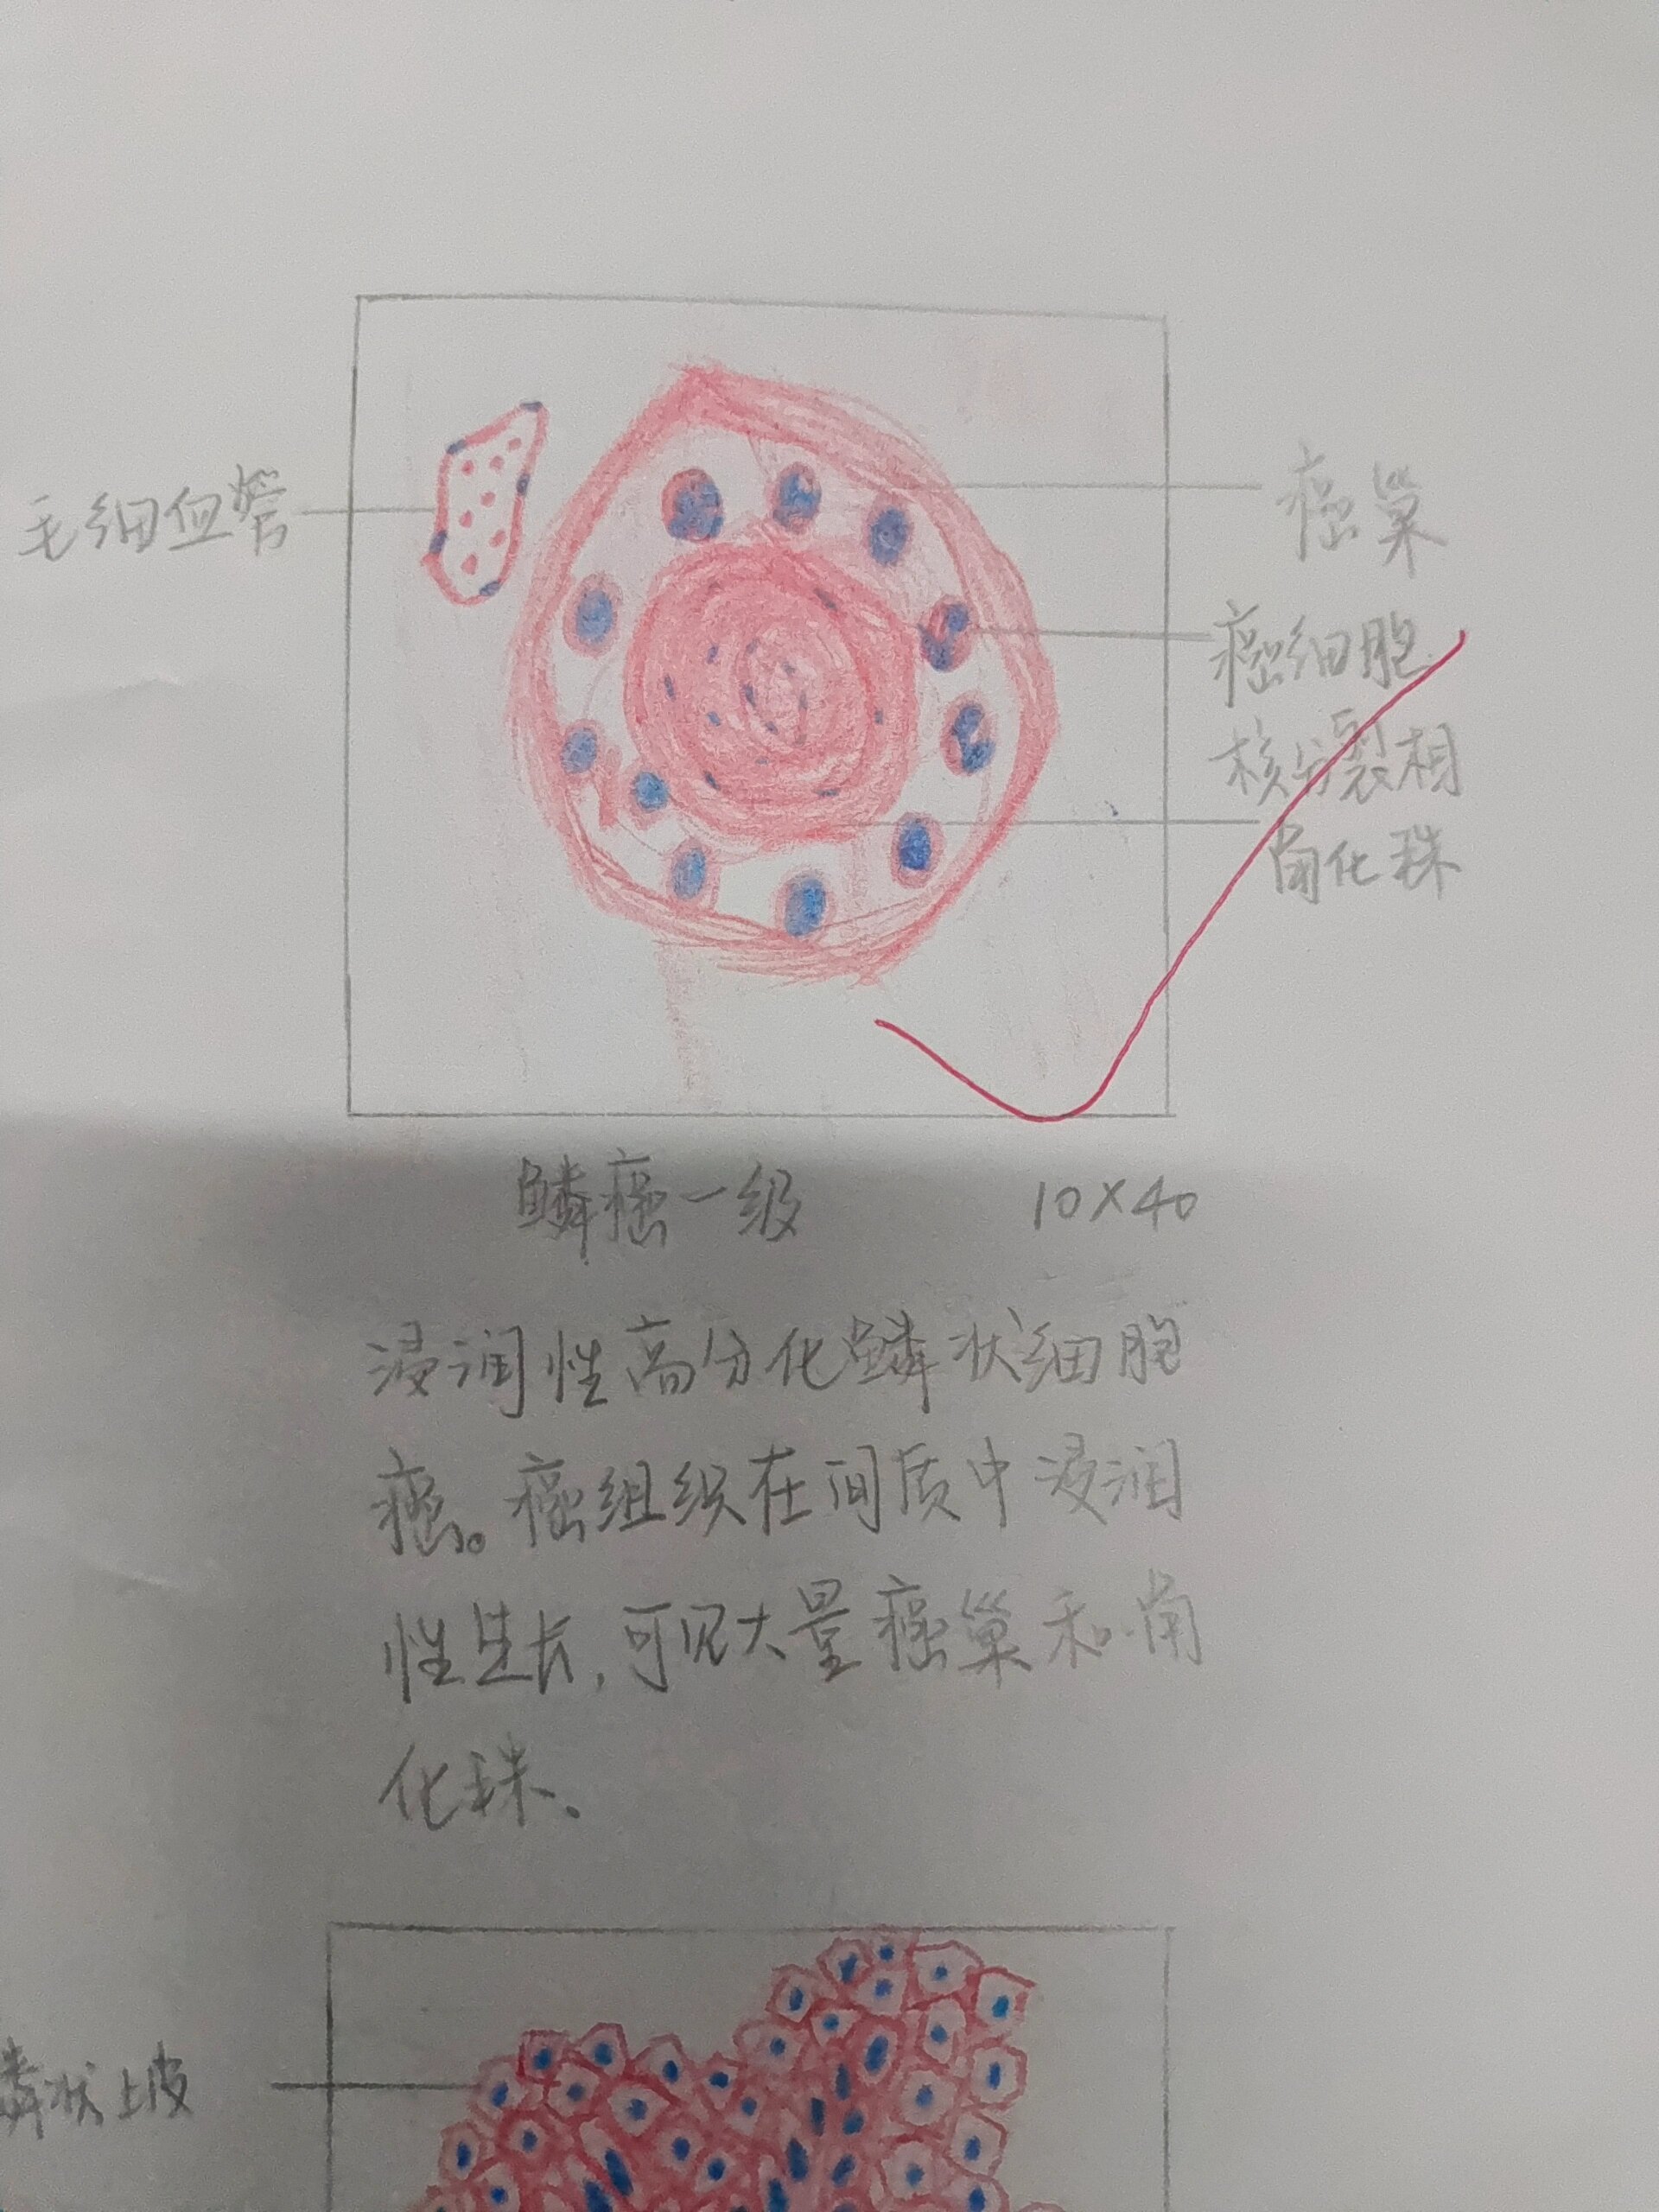 毛细血管
癌巢
癌细胞
核分裂相
角化珠
鳞癌一级 10×40
浸润性高分化鳞状细胞
癌。癌组织在间质中浸润
性生长,可见大量癌巢和角
化珠.
鳞状上皮